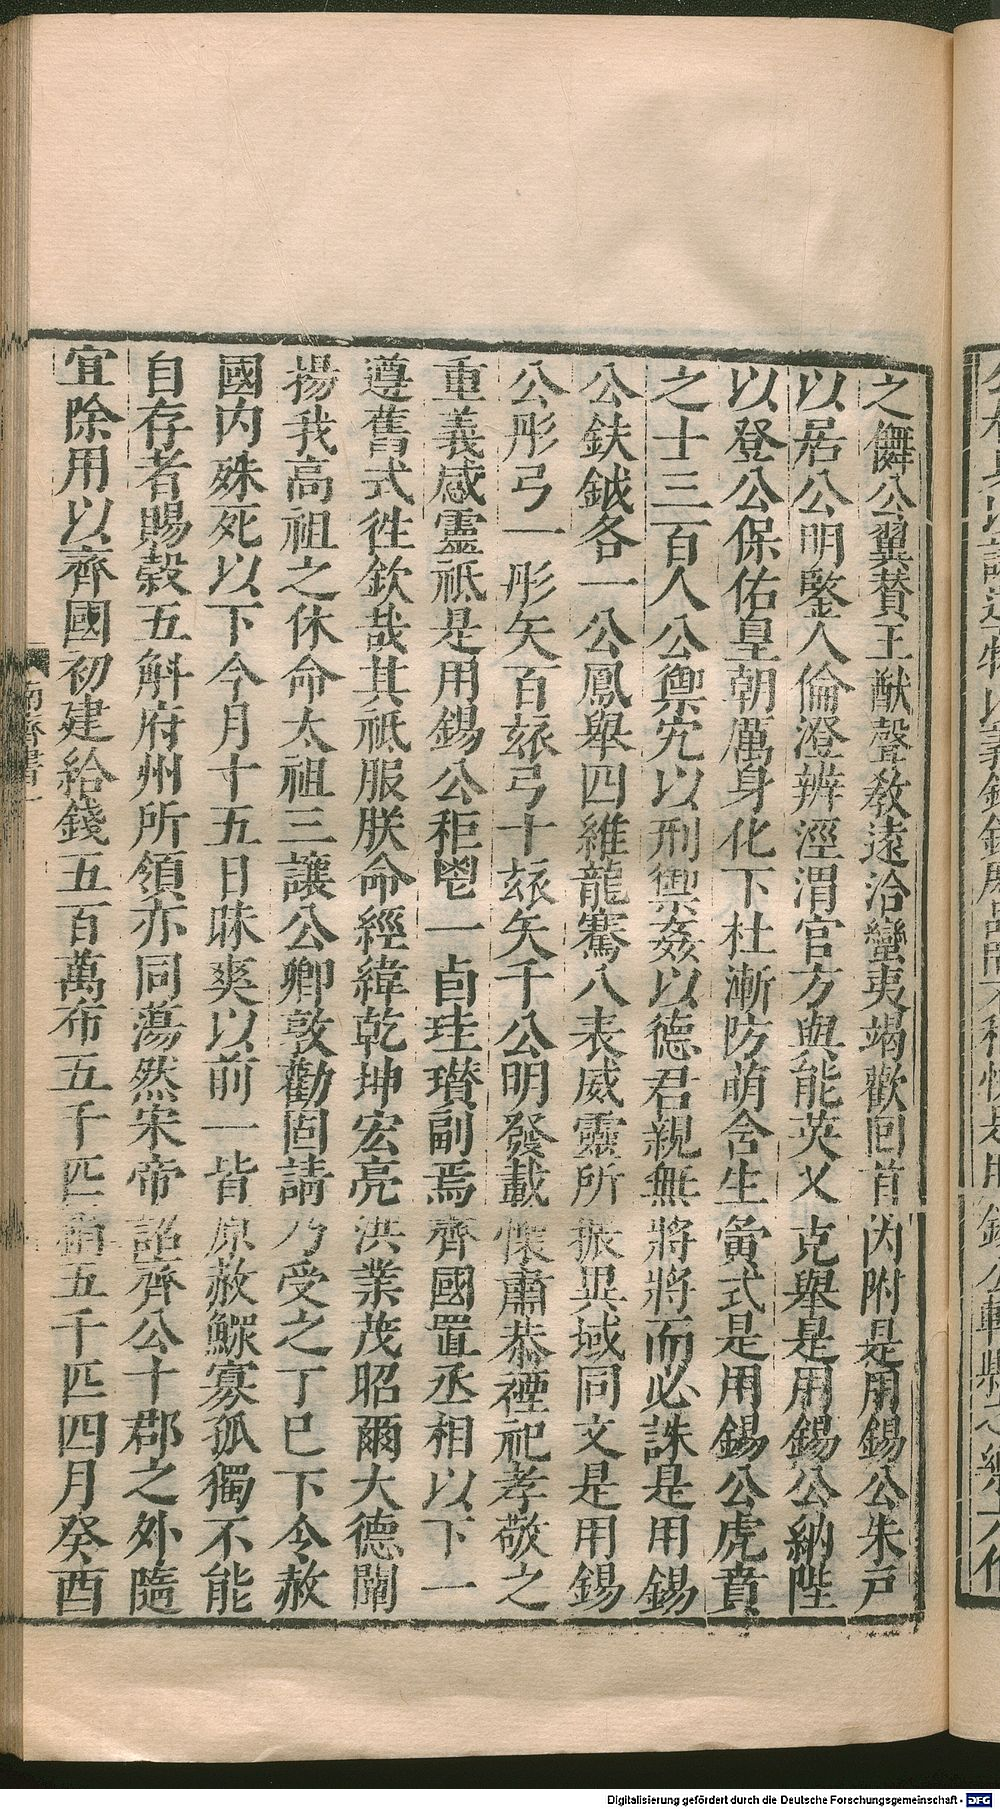 之儛公翼賛王猷聲敎遠洽蠻夷竭歡回首內附是用錫公朱戸
以居公明鑒人倫澄辨涇渭官方與能英乂克舉是用錫公納陛
以登公保佑皇朝厲身化下杜漸防萌含生寅式是用錫公虎賁
之士三百人公禦宄以刑禦姦以德君親無將將而必誅是用錫
公鈇鉞各一公鳳舉四維龍騫八表威靈所振異域同文是用錫
公彤弓一彤矢百玈弓十玈矢千公明發載懷肅恭禋祀孝敬之
重義感靈祇是用錫公秬鬯一卣珪瓚副焉齊國置丞相以下一
遵舊式徃欽哉其祗服朕命經緯乾坤宏亮洪業茂昭爾大德闡
揚我高祖之休命太祖三讓公卿敦勸固請乃受之丁巳下令赦
國内殊死以下今月十五日昧爽以前一皆原赦鰥寡孤獨不能
自存者賜穀五斛府州所領亦同蕩然宋帝詔齊公十郡之外隨
宜除用以齊國初建給錢五百萬布五千匹絹五千匹四月癸酉
南齊書一
Digitalisierung gefördert durch die Deutsche Forschungsgemeinschaft - DFG